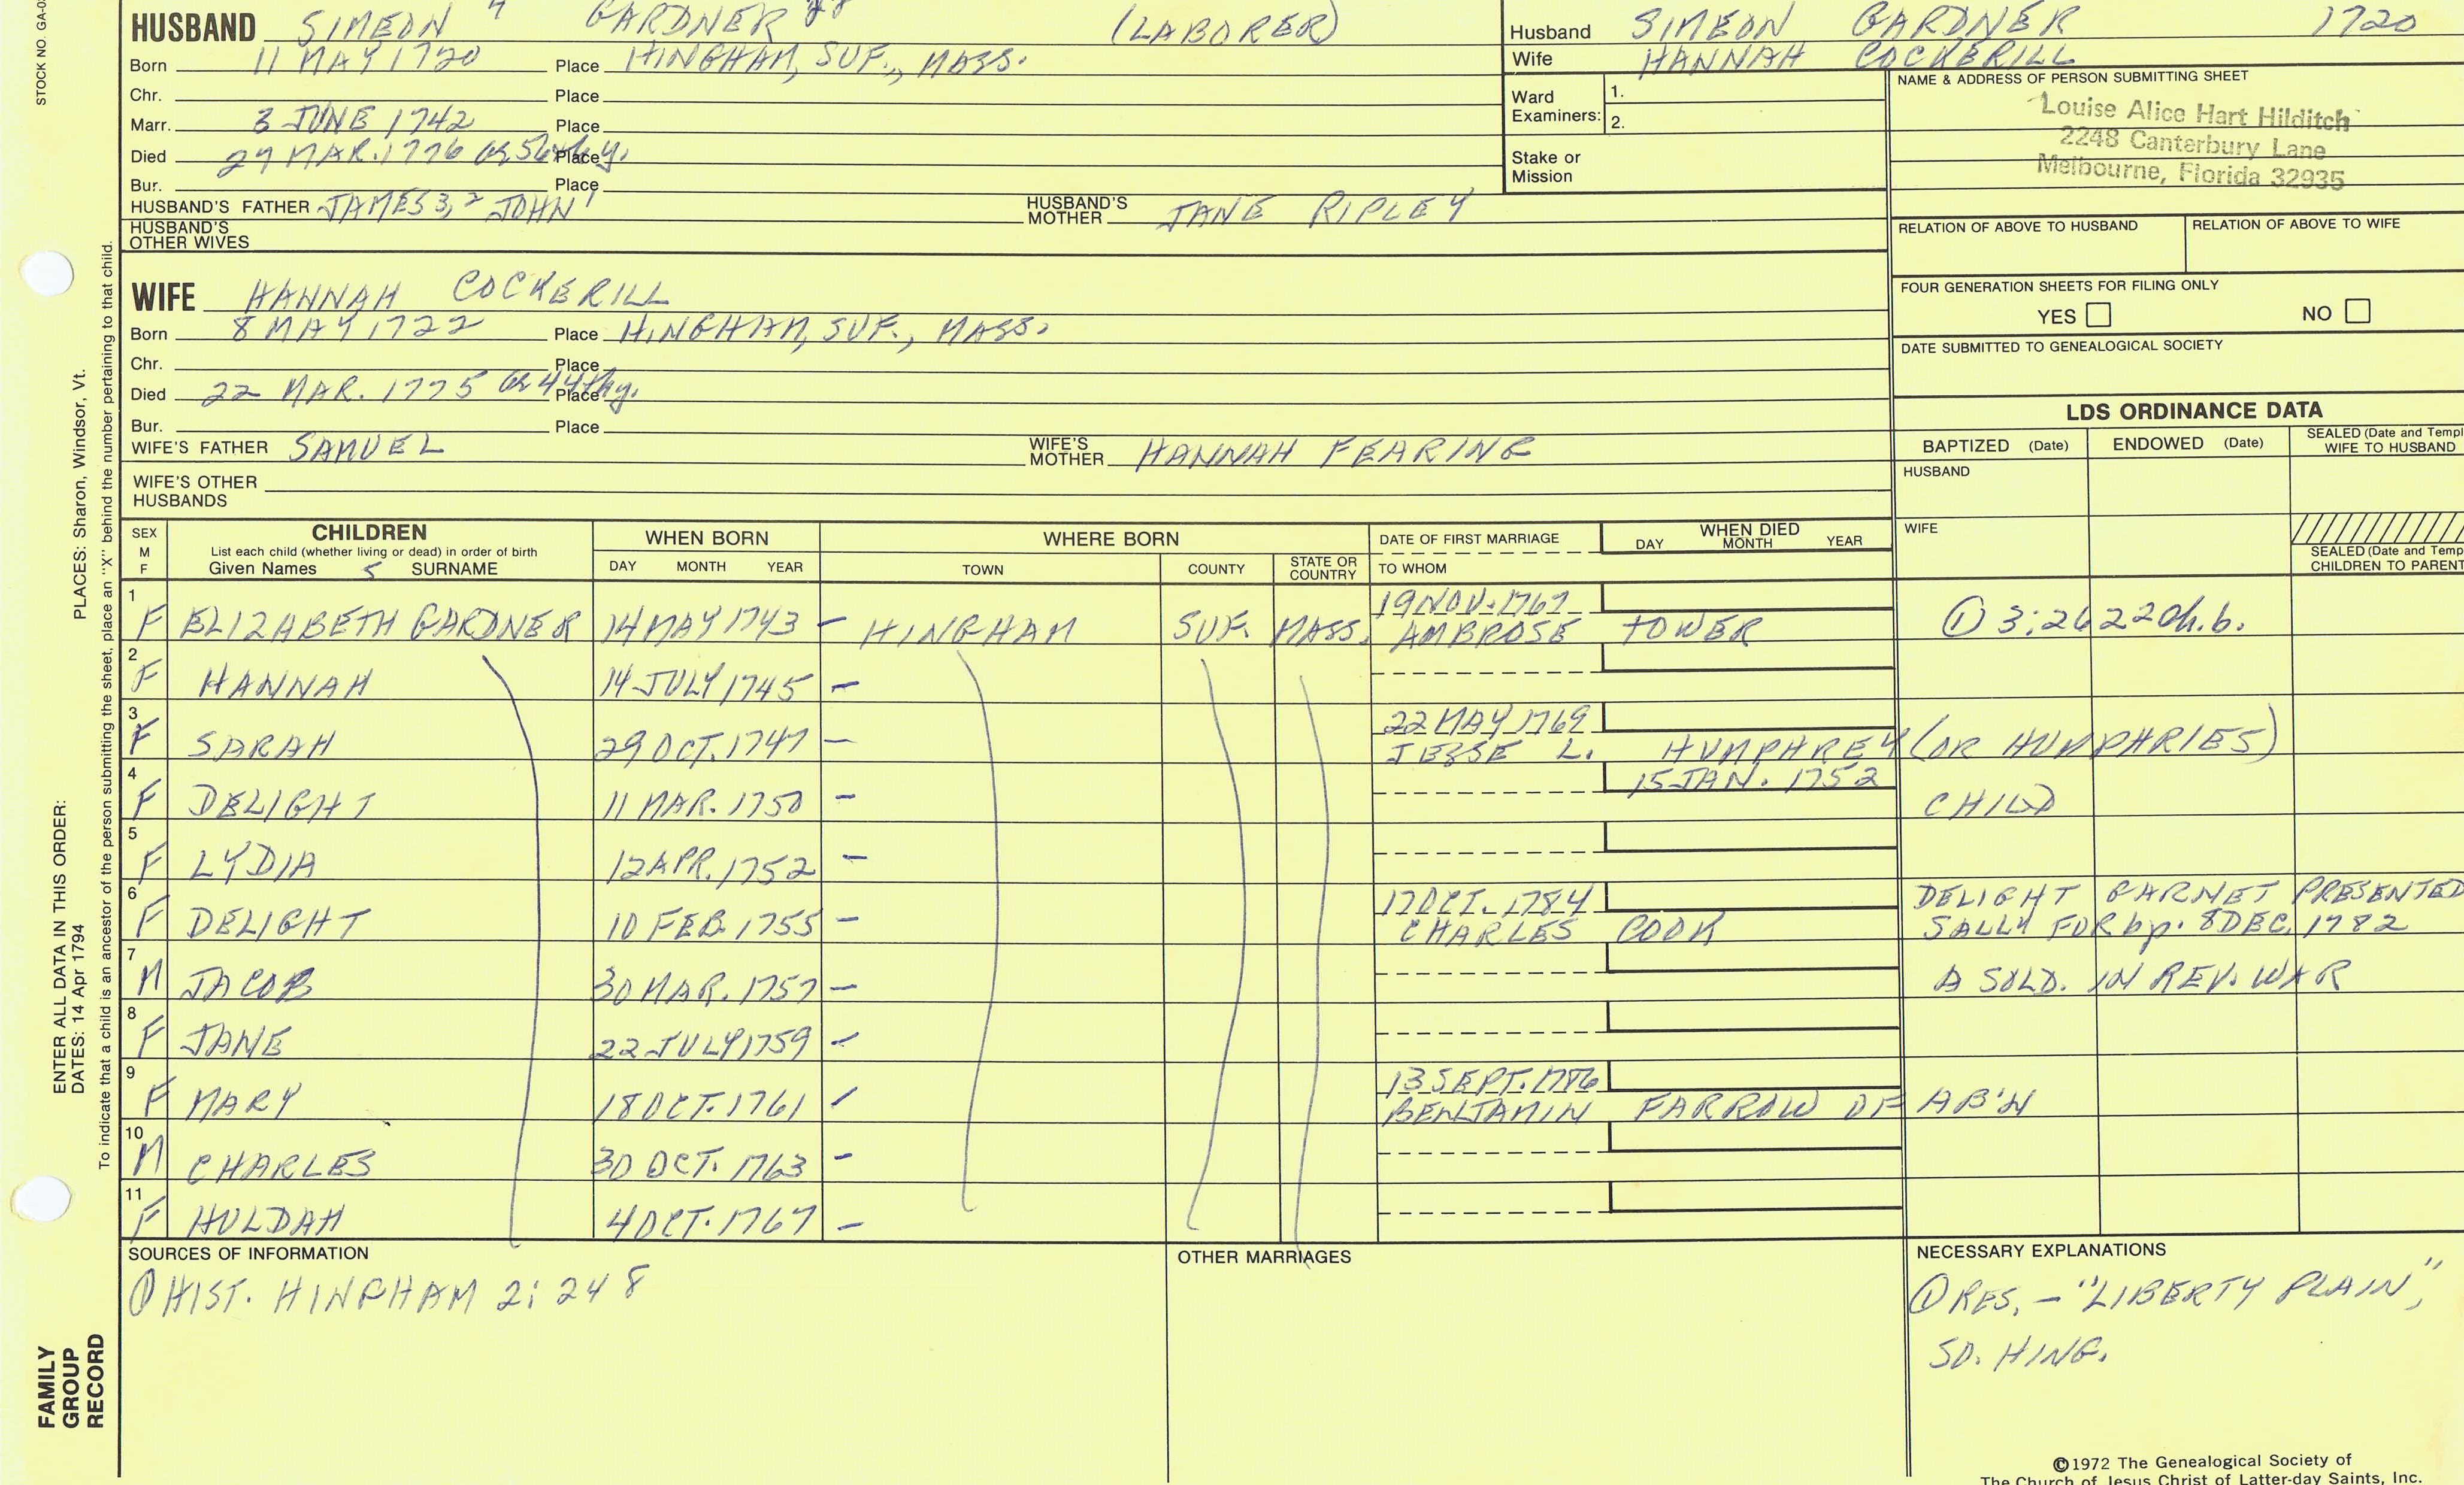 STOCK NO. GA-0
HUSBAND SIMEON 4 GARDNER (LABORER)
Born 11 MAY 1720 Place HINGHAM, SUF., MASS.
Chr. Place
Marr. 3 JUNE 1742 Place
Died 27 MAR. 1776 Place
Bur. Place
HUSBAND'S FATHER JAMES 3, 2 JOHN 1 HUSBAND'S MOTHER JANE RIPLEY
HUSBAND'S OTHER WIVES
Husband SIMEON GARDNER 1720
Wife HANNAH COCKERILL
Ward Examiners: 1.
2.
Stake or Mission
NAME & ADDRESS OF PERSON SUBMITTING SHEET
Louise Alice Hart Hilditch
2248 Canterbury Lane
Melbourne, Florida 32935
RELATION OF ABOVE TO HUSBAND RELATION OF ABOVE TO WIFE
FOUR GENERATION SHEETS FOR FILING ONLY
YES NO
DATE SUBMITTED TO GENEALOGICAL SOCIETY
WIFE HANNAH COCKERILL
Born 8 MAY 1722 Place HINGHAM, SUF., MASS.
Chr. Place
Died 22 MAR. 1775 Place
Bur. Place
WIFE'S FATHER SAMUEL WIFE'S MOTHER HANNAH FEARING
WIFE'S OTHER HUSBANDS
LDS ORDINANCE DATA
BAPTIZED (Date) ENDOWED (Date) SEALED (Date and Templ
WIFE TO HUSBAND
HUSBAND
WIFE
SEALED (Date and Temp
CHILDREN TO PARENT
SEX M F CHILDREN WHEN BORN WHERE BORN DATE OF FIRST MARRIAGE WHEN DIED
List each child (whether living or dead) in order of birth
Given Names 5 SURNAME DAY MONTH YEAR TOWN COUNTY STATE OR COUNTRY TO WHOM DAY MONTH YEAR
1 19 NOV. 1767
F ELIZABETH GARDNER 14 MAY 1743 - HINGHAM SUF. MASS. AMBROSE TOWER ① 3:26
2
F HANNAH 14 JULY 1745 -
3 22 MAY 1769
F SARAH 29 OCT. 1747 - JESSE L. HUMPHREY (OR HUMPHRIES)
4 15 JAN. 1752
F DELIGHT 11 MAR. 1750 - CHILD
5
F LYDIA 12 APR. 1752 -
6 17 OCT. 1784 DELIGHT GARNET PRESENTED
F DELIGHT 10 FEB. 1755 - CHARLES COOK SALLY FOR bp. 8 DEC. 1782
7
M JACOB 30 MAR. 1757 - A SOLD. IN REV. WAR
8
F JANE 22 JULY 1759 -
9 13 SEPT. 1786
F MARY 18 OCT. 1761 - BENJAMIN FARROW OF AB'N
10
M CHARLES 30 OCT. 1763 -
11
F HULDAH 4 OCT. 1767 -
SOURCES OF INFORMATION OTHER MARRIAGES NECESSARY EXPLANATIONS
① HIST. HINGHAM 2:248
① RES. - "LIBERTY PLAIN",
SO. HING.
©1972 The Genealogical Society of
The Church of Jesus Christ of Latter-day Saints, Inc.
ENTER ALL DATA IN THIS ORDER:
DATES: 14 Apr 1794 PLACES: Sharon, Windsor, Vt.
To indicate that a child is an ancestor of the person submitting the sheet, place an "X" behind the number pertaining to that child.
FAMILY
GROUP
RECORD